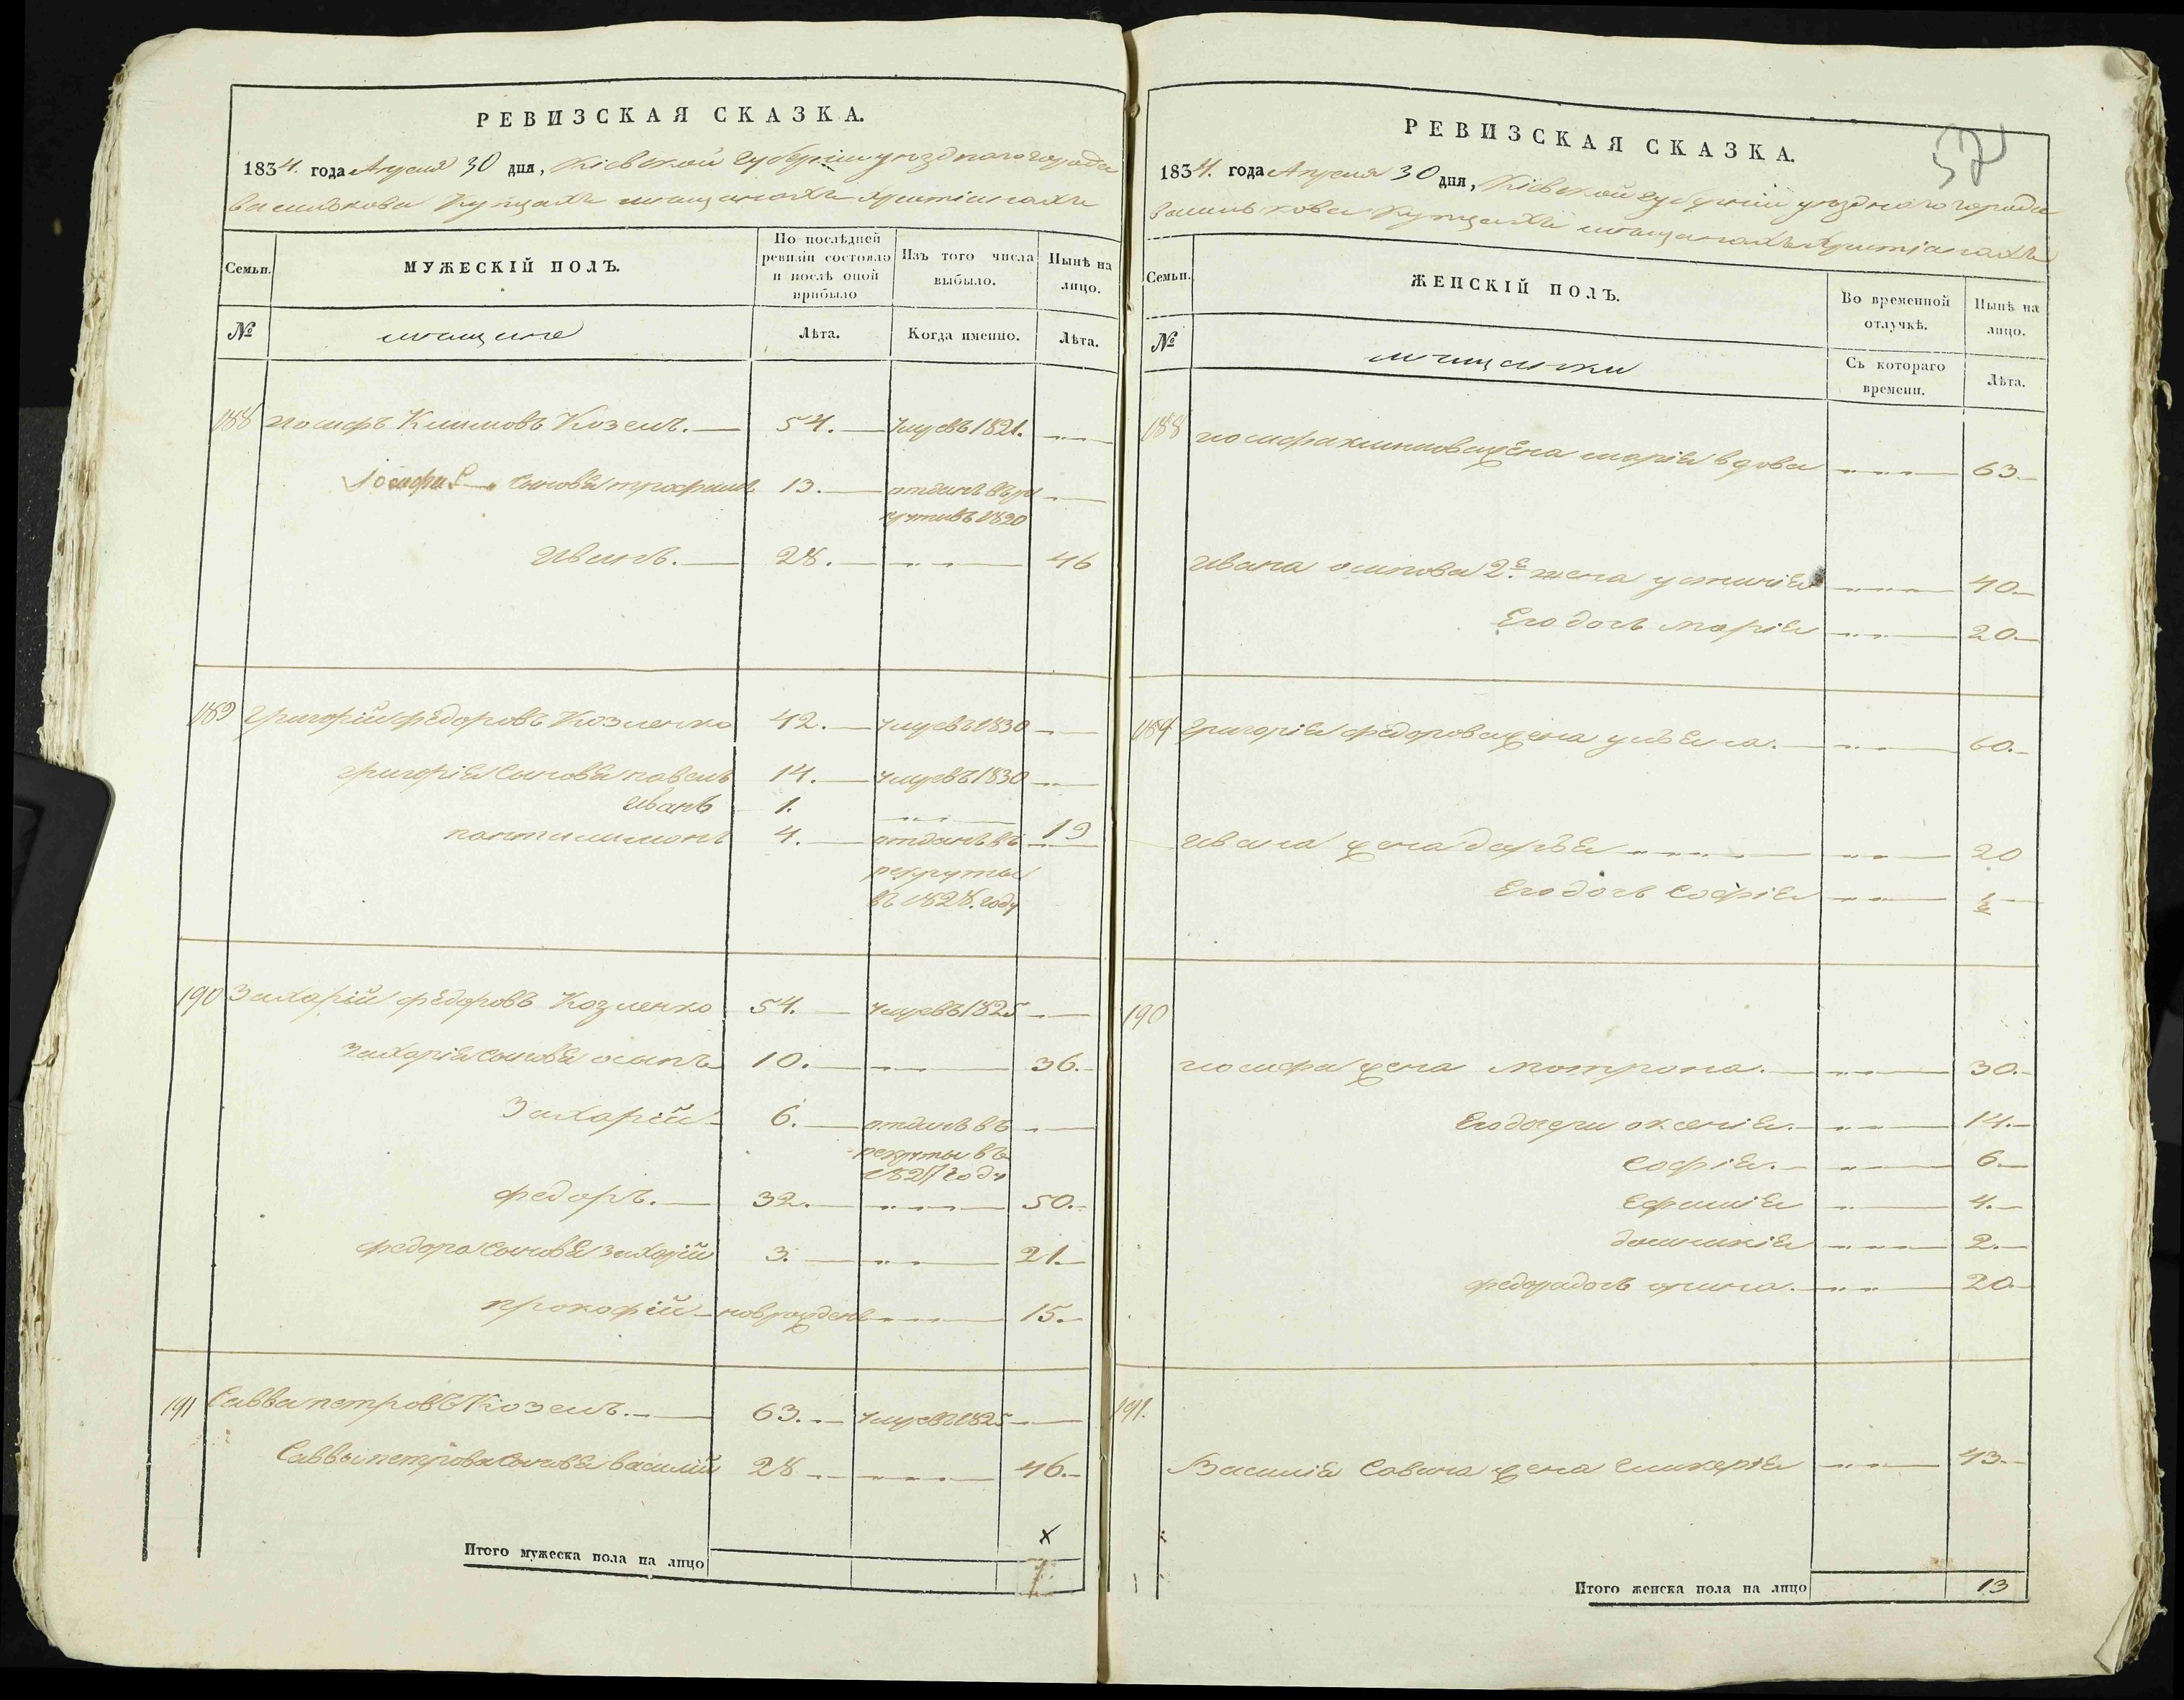 РЕВИЗСКАЯ СКАЗКА.
1834. года Апреля 30 дня, Кіевской губерніи уезднаго города
василькова Купцахъ мещанахъ христіанахъ
Семьи.
МУЖЕСКІЙ ПОЛЪ.
По послѣдней ревизіи состояло и послѣ оной прибыло
Изъ того числа выбыло.
Нынѣ на лицо.
№
мещане
Лѣта.
Когда именно.
Лѣта.
188 иосифъ Климовъ Козелъ. 54. умре въ 1821.
Іосифа сыновья трофимъ 13. отданъ въ ре
круты въ 1820
Иванъ. 28. 46
189 Григорій федоровъ Козленко 42. умре въ 1830
григорія сыновья павелъ 14. умре въ 1830
иванъ 1. 19
пантилимонъ 4. отданъ въ
рекруты
въ 1828. году
190 Захарій федоровъ Козленко 54. умре въ 1825
Захарія сыновья осипъ 10. 36.
Захарій 6. отданъ въ
рекруты въ
1827 году
федоръ. 32. 50.
федора сыновья захарій 3. 21.
прокофій новрожденъ 15.
191 Савва петровъ Козелъ. 63. умре въ 1825
Саввы петрова сыновья василій 28 46.
Итого мужеска пола на лицо
х
7
57
РЕВИЗСКАЯ СКАЗКА.
1834. года Апреля 30 дня, Кіевской губерніи уезднаго города
василькова Купцахъ мещанахъ христіанахъ
Семьи.
ЖЕНСКІЙ ПОЛЪ.
Во временной отлучкѣ.
Нынѣ на лицо.
№
мещанки
Съ котораго времени.
Лѣта.
188 иосифа климова жена марія вдова 63.
Ивана осипова 2е жена устинія 40.
Его дочь марія 20.
189 Григорія федорова жена ульяна. 60.
Ивана жена дарья 20
Его дочь софія 1/2
190
иосифа жена мотрона. 30.
Его дочери оксенія. 14.
софія. 6.
ефимія 4.
домникія 2.
федора дочь орина. 20.
191.
Василія Савина жена гликерія 43.
Итого женска пола на лицо 13